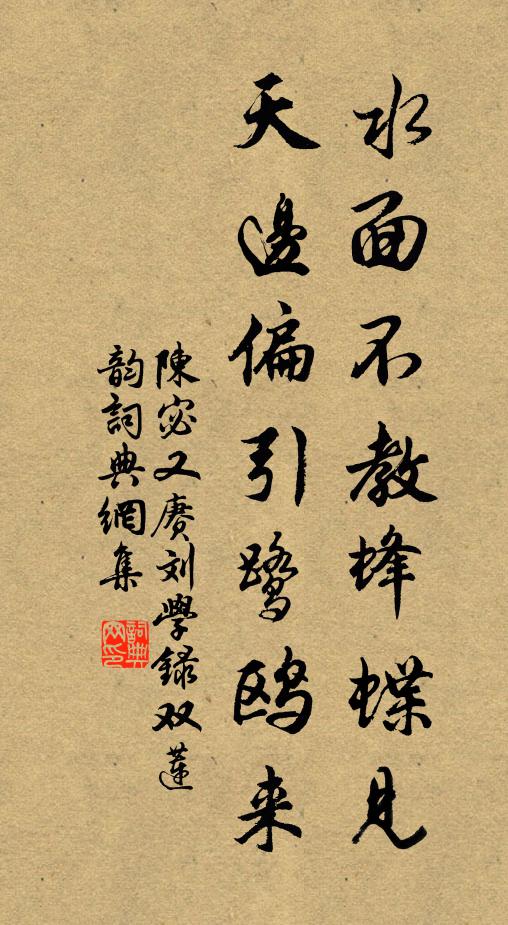 水面不教蜂蝶見
天邊偏引鷺鷗来
陳宓又赓刘學録双蓮
韵詞典網集
詞典网印